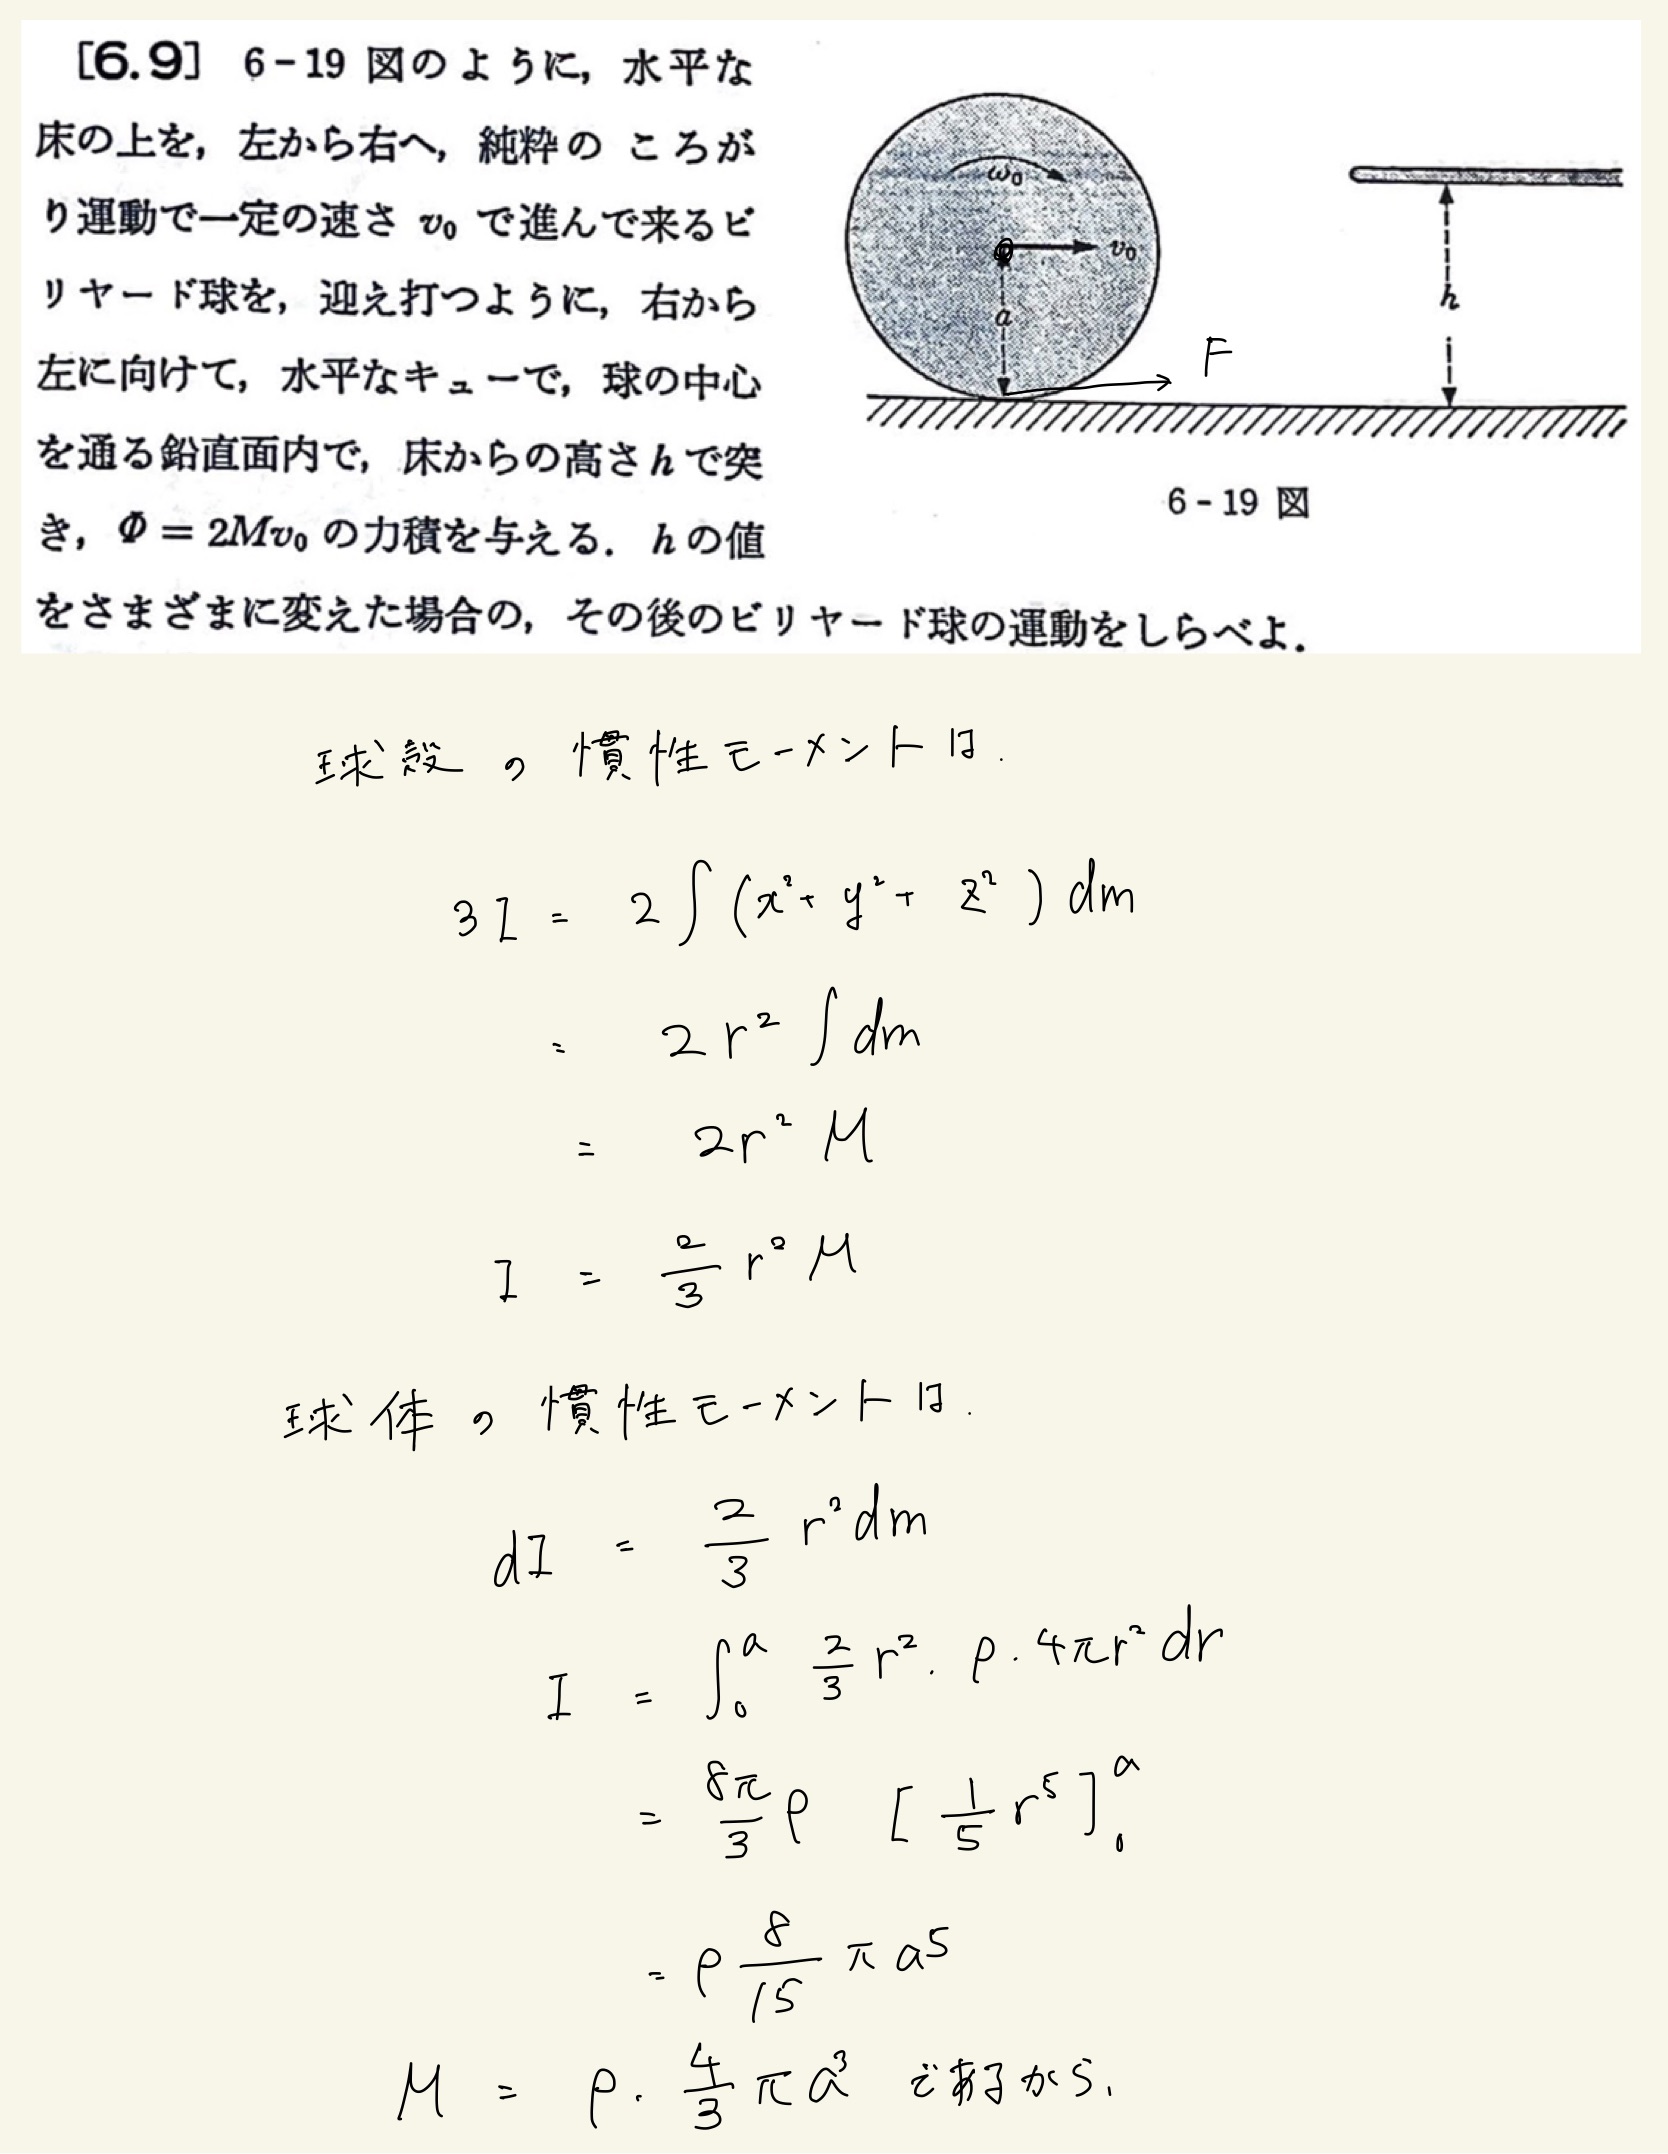 [6.9] 6-19 図のように，水平な
床の上を，左から右へ，純粋のころが
り運動で一定の速さ v₀ で進んで来るビ
リヤード球を，迎え打つように，右から
左に向けて，水平なキューで，球の中心
を通る鉛直面内で，床からの高さ h で突
き，Φ = 2Mv₀ の力積を与える．h の値
をさまざまに変えた場合の，その後のビリヤード球の運動をしらべよ．
ω₀
v₀
a
F
h
6-19 図
球殻の慣性モーメントは.
3I = 2∫(x²+ y²+ z²)dm
= 2r²∫dm
= 2r² M
I = 2/3 r² M
球体の慣性モーメントは.
dI = 2/3 r²dm
I = ∫₀ᵃ 2/3 r². ρ. 4πr² dr
= 8π/3 ρ [1/5 r⁵]₀ᵃ
= ρ 8/15 π a⁵
M = ρ. 4/3 π a³ であるから、